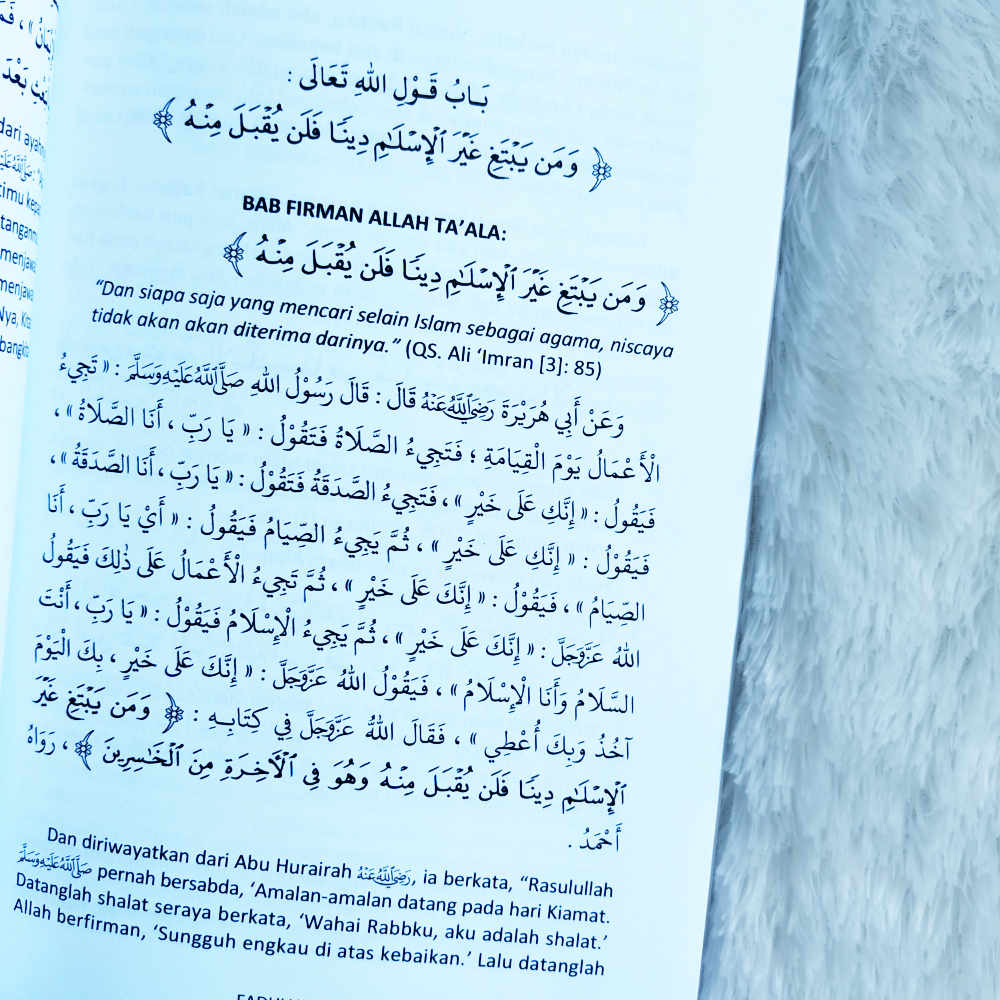 بَابُ قَوْلِ اللهِ تَعَالَى :
﴿ وَمَن يَبْتَغِ غَيْرَ ٱلْإِسْلَٰمِ دِينًا فَلَن يُقْبَلَ مِنْهُ ﴾
BAB FIRMAN ALLAH TA’ALA:
﴿ وَمَن يَبْتَغِ غَيْرَ ٱلْإِسْلَٰمِ دِينًا فَلَن يُقْبَلَ مِنْهُ ﴾
“Dan siapa saja yang mencari selain Islam sebagai agama, niscaya
tidak akan akan diterima darinya.” (QS. Ali ‘Imran [3]: 85)
وَعَنْ أَبِي هُرَيْرَةَ رَضِيَ اللَّهُ عَنْهُ قَالَ : قَالَ رَسُوْلُ اللهِ صَلَّى اللَّهُ عَلَيْهِ وَسَلَّمَ : « تَجِيءُ
الْأَعْمَالُ يَوْمَ الْقِيَامَةِ ؛ فَتَجِيءُ الصَّلَاةُ فَتَقُوْلُ : « يَا رَبِّ ، أَنَا الصَّلَاةُ » ،
فَيَقُولُ : « إِنَّكِ عَلَى خَيْرٍ » ، فَتَجِيءُ الصَّدَقَةُ فَتَقُوْلُ : « يَا رَبِّ ، أَنَا الصَّدَقَةُ » ،
فَيَقُوْلُ : « إِنَّكِ عَلَى خَيْرٍ » ، ثُمَّ يَجِيءُ الصِّيَامُ فَيَقُولُ : « أَيْ يَا رَبِّ ، أَنَا
الصِّيَامُ » ، فَيَقُوْلُ : « إِنَّكَ عَلَى خَيْرٍ » ، ثُمَّ تَجِيءُ الْأَعْمَالُ عَلَى ذٰلِكَ فَيَقُولُ
اللهُ عَزَّوَجَلَّ : « إِنَّكَ عَلَى خَيْرٍ » ، ثُمَّ يَجِيءُ الْإِسْلَامُ فَيَقُوْلُ : « يَا رَبِّ ، أَنْتَ
السَّلَامُ وَأَنَا الْإِسْلَامُ » ، فَيَقُولُ اللهُ عَزَّوَجَلَّ : « إِنَّكَ عَلَى خَيْرٍ ، بِكَ الْيَوْمَ
آخُذُ وَبِكَ أُعْطِي » ، فَقَالَ اللهُ عَزَّوَجَلَّ فِي كِتَابِهِ : ﴿ وَمَن يَبْتَغِ غَيْرَ
ٱلْإِسْلَٰمِ دِينًا فَلَن يُقْبَلَ مِنْهُ وَهُوَ فِي ٱلْآخِرَةِ مِنَ ٱلْخَٰسِرِينَ ﴾ ، رَوَاهُ
أَحْمَدُ .
Dan diriwayatkan dari Abu Hurairah رَضِيَ اللَّهُ عَنْهُ, ia berkata, “Rasulullah
صَلَّى اللَّهُ عَلَيْهِ وَسَلَّمَ pernah bersabda, ‘Amalan-amalan datang pada hari Kiamat.
Datanglah shalat seraya berkata, ‘Wahai Rabbku, aku adalah shalat.’
Allah berfirman, ‘Sungguh engkau di atas kebaikan.’ Lalu datanglah